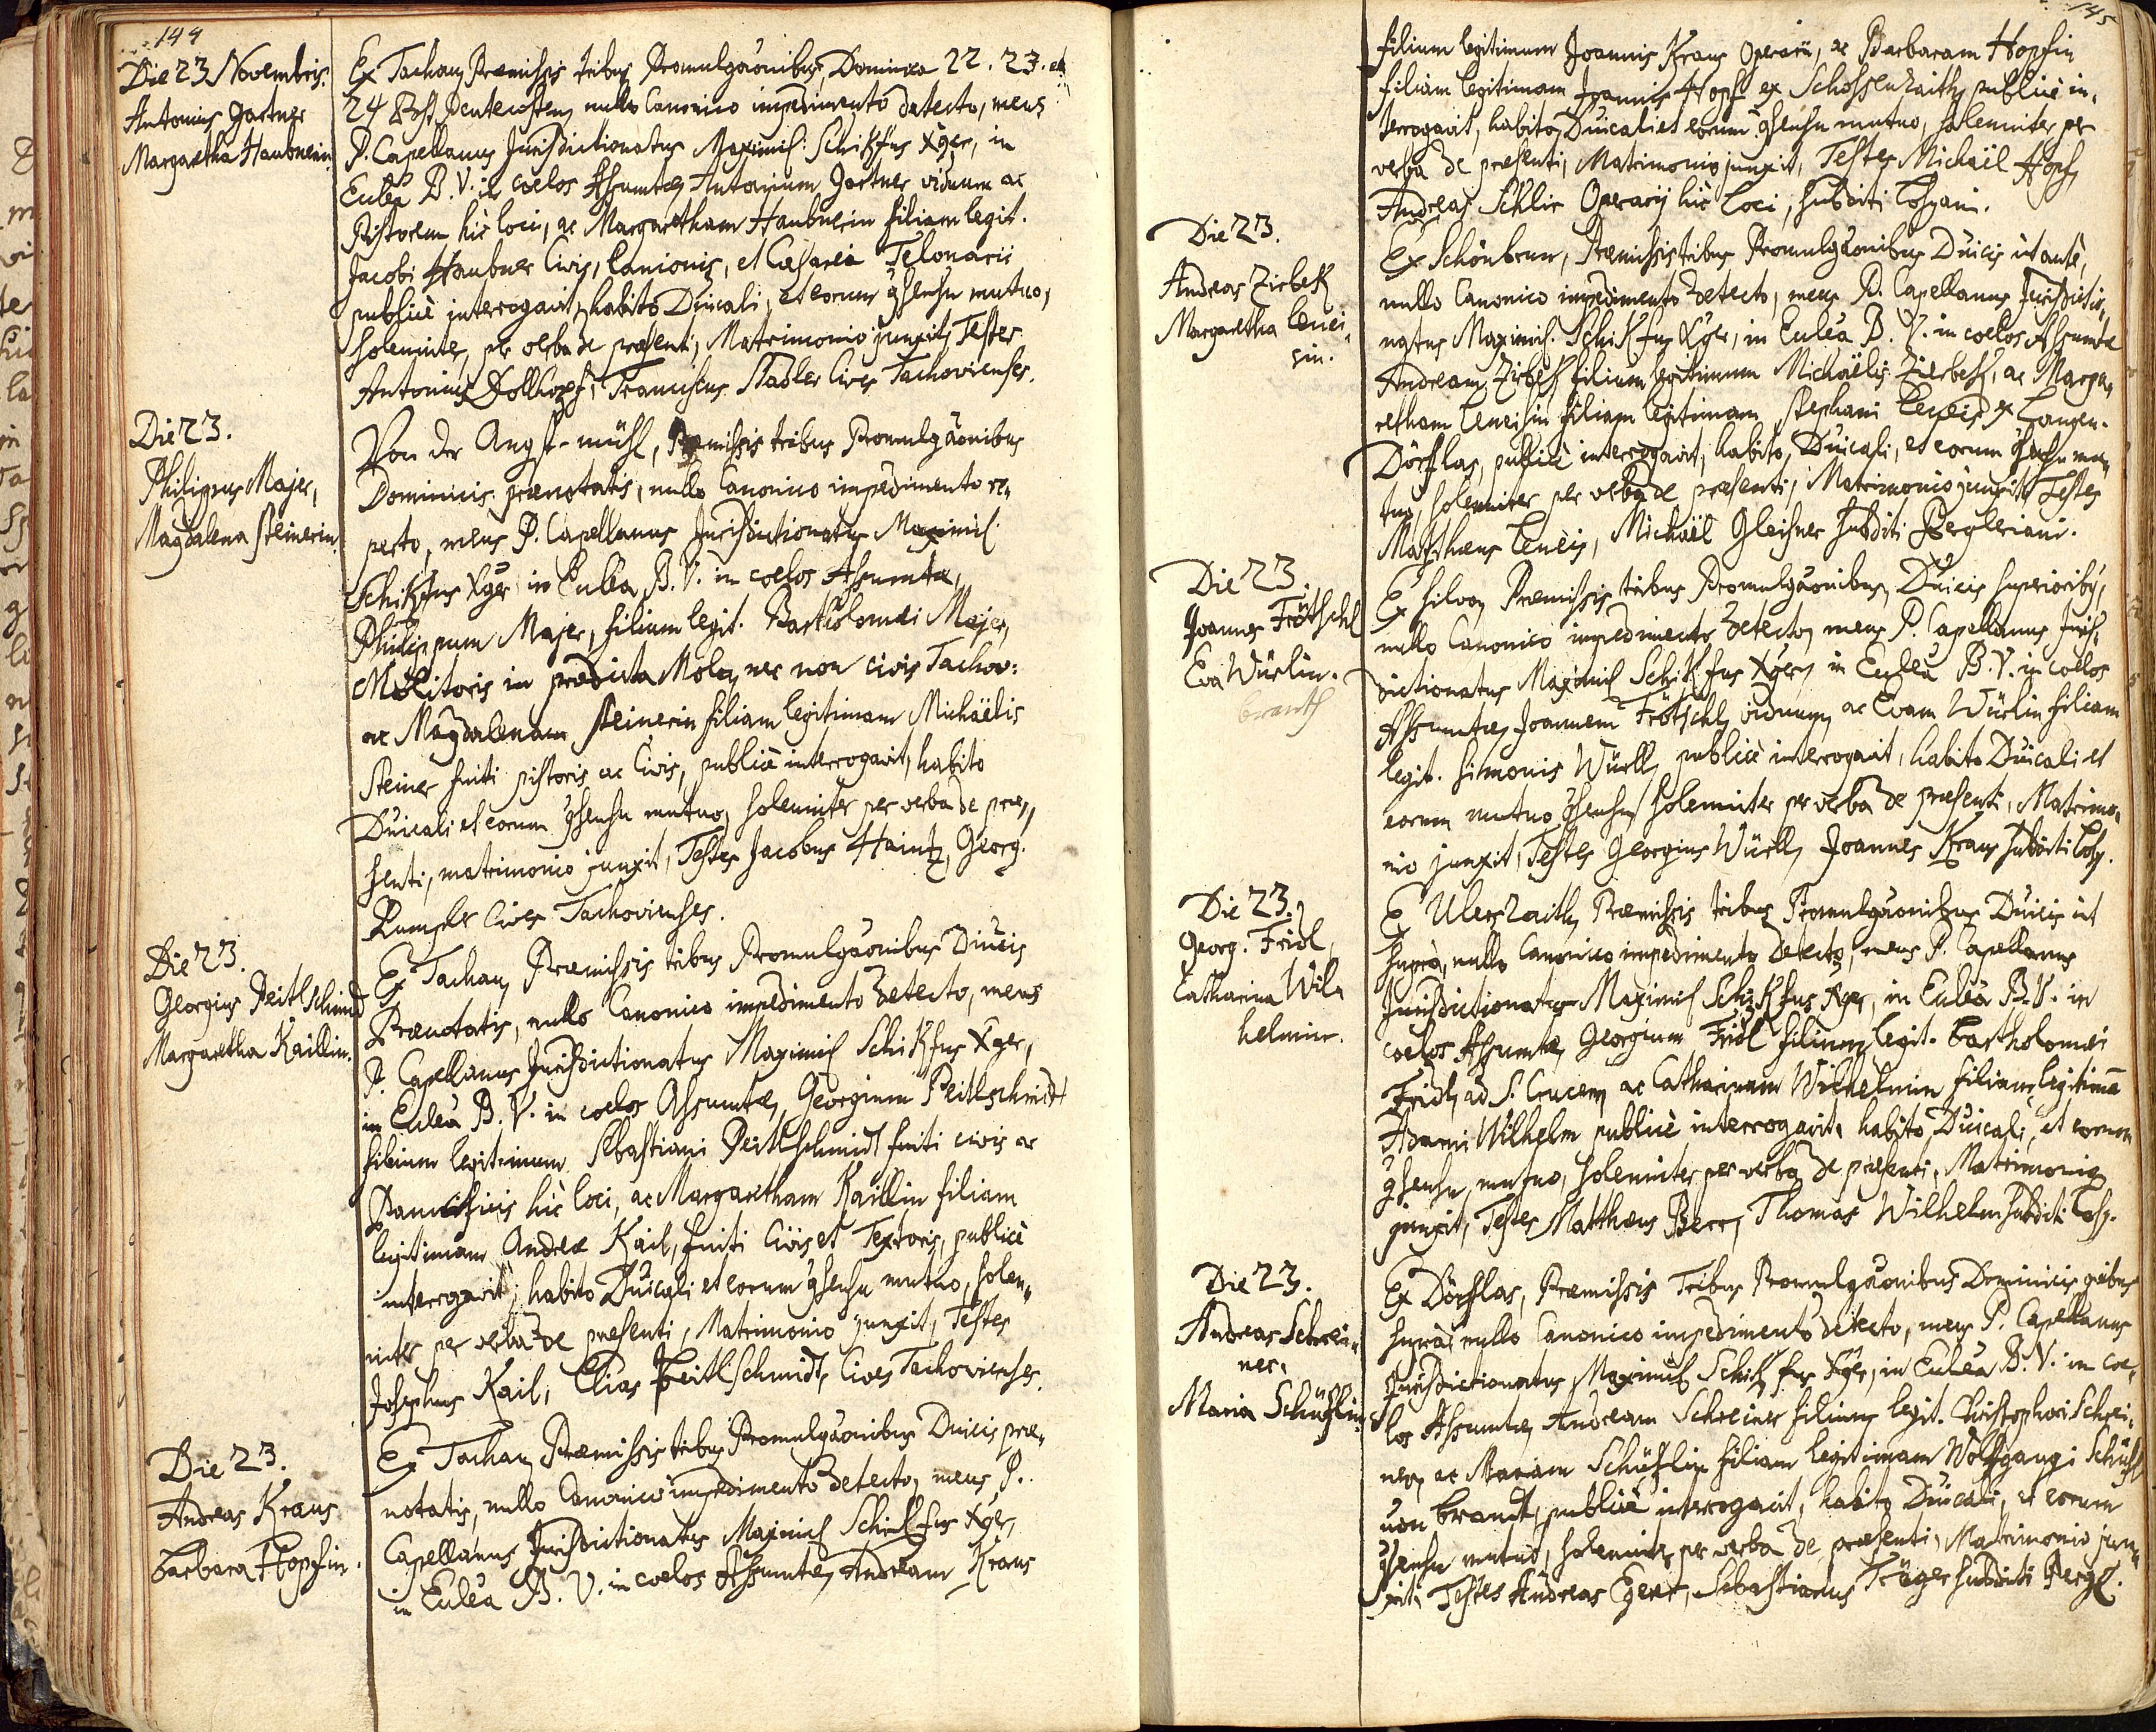 144
Die 23 Novembris.
Antonius Gartner
Margaretha Haubnerin
Ex Tachau, Præmissis tribus Promulgãonibus Dominica 22. 23. et
24 Post Pentecosten, nullo Canonico impedimento detecto, meus
P. Capellanus Jurisdictionatus Maximil: Schikfus Xger, in
Eccleã B. V. in coelos Assumtæ, Antonium Gartner viduum ac
Pistorem hic loci, ac Margaretham Haubnerin filiam legit.
Jacobi Haubner Civis, Lanionis, et Cæsarei Telonarii
publicè interrogavit, habito Duicali, et eorum gsensu mutuo,
solemniter, per verba de præsenti, Matrimonio junxit, Testes
Antonius Dollhopf, Franciscus Stadler Cives Tachovienses.
Die 23.
Philippus Majer,
Magdalena Steinerin.
Von der Angst-mühl, Præmissis tribus Promulgãonibus
Dominicis prænotatis, nullo Canonico impedimento re,
perto, meus P. Capellanus Jurisdictionatus Maximil
Schikfus Xger in Eccleã B. V. in coelos Assumtæ,
Philippum Majer, filium legit. Bartholomæi Majer,
Molitoris in prædicta Mola, nec non civis Tachov:
ac Magdalenam Steinerin filiam legitimam Michaëlis
Steiner fuiti pistoris ac Civis, publicè interrogavit, habito
Duicali et eorum gsensu mutuo, solemniter per verba de præ,,
senti, matrimonio junxit, Testes Jacobus Haintz, Georg.
Rumpler Cives Tachovienses.
Die 23.
Georgius Peitlschmid
Margaretha Kaillin.
Ex Tachau, Præmissis tribus Promulgãonibus Diuicis
Prænotatis, nullo Canonico impedimento detecto, meus
P. Capellanus Jurisdictionatus Maximil Schikfus Xger,
in Eccleã B. V. in coelos Assumtæ, Georgium Peitlschmidt
filium legitimum Sebastiani Peitlschmidt fuiti civis ac
Pannificis hic loci, ac Margaretham Kaillin filiam
legitimam Andreæ Kail, fuiti Civis et Textoris, publicè
interrogavit, habito Duicali et eorum gsensu mutuo, solem,,
niter per verba de præsenti, Matrimonio junxit, Testes
Josephus Kail, Elias Peitlschmidt, Cives Tachovienses.
Die 23.
Andreas Kraus
Barbara Hopfin.
Ex Tachau, Præmissis tribus Promulgãonibus Duicis præ,,
notatis, nullo Canonico impedimento detecto, meus P.
Capellanus Jurisdictionatus Maximil Schikfus Xger,
in Eccleã B. V. in coelos Assumtæ, Andream Kraus
145
filium legitimum Joannis Kraus Operarii, ac Barbaram Hopfin
filiam legitimam Joannis Hopf ex Schossenraith, publicè in,
terrogavit, habito, Duicali et eorum gsensu mutuo, solemniter per
verba de præsenti, Matrimonio junxit, Testes Michaël Hopf,
Andreas Schlir Operarij hic Loci, subditi Losyani.
Die 23.
Andreas Zirbek
Margaretha Leuei,,
sin.
Ex Schönbrun, Præmissis tribus Promulgãonibus Duicis ut antè,
nullo Canonico impedimento detecto, meus P. Capellanus Jurisdictio,
natus Maximil. Schikfus Xger, in Eccleã B. V. in coelos Assumtæ
Andream Zirbek filium legitimum Michaëlis Zierbek, ac Marga,
retham Leueisin filiam legitimam Stephani Leueis ex Langen-
Dörflas, publicè interrogavit, habito, Duicali, et eorum gsensu mu,
tuo, solemniter per verba de præsenti, Matrimonio junxit, Testes
Matthæus Leueis, Michaël Gleisner subditi Pergleriani.
Die 23.
Joannes Frötschl
Eva Würlin.
Ex Silva, Præmissis tribus Promulgãonibus, Duicis superioribus,
nullo Canonico impedimento detecto, meus P. Capellanus Juris,
dictionatus Maximil Schikfus Xger, in Eccleã B. V. in coelos
Assumtæ, Joannem Frötschl, viduum, ac Evam Würlin filiam
legit. Simonis Würll, publicè interrogavit, habito Duicali et
eorum mutuo gsensu, solemniter per verba de præsenti, Matrimo,
nio junxit, Testes Georgius Würll, Joannes Kraus subditi Losy.
Die 23.
Georg. Fridl,
Catharina Wil,
helmin.
Ex Ulerszaith, Præmissis tribus Promulgãonibus Duicis ut
suprà, nullo Canonico impedimento detecto, meus P. Capellanus
Jurisdictionatus Maximil Schikfus Xger, in Eccleã B. V. in
coelos Assumtæ, Georgium Fridl filium legit. Bartholomæi
Fridl, ad S. Crucem, ac Catharinam Wilhelmin filiam legitimã
Adami Wilhelm publicè interrogavit, habito, Duicali, et eorum
gsensu mutuo, solemniter per verba de præsenti, Matrimonio
junxit, Testes Matthæus Beer, Thomas Wilhelm subditi Losy.
Die 23.
Andreas Schrei,,
ner.
Maria Schüslin
Ex Dörflas, Præmissis Tribus Promulgãonibus Dominicis quibus
suprà, nullo Canonico impedimento detecto, meus P. Capellanus
Jurisdictionatus Maximil Schikfus Xger, in Eccleã B. V. in coe,
los Assumtæ, Andream Schreiner filium legit. Christophori Schrei,
ner, ac Mariam Schüslin filiam legitimam Wolfgangi Schüsl
von Brandt, publicè interrogavit, habito Duicali, et eorum
gsensu mutuo, solemniter per verba de præsenti, Matrimonio jun,
xit, Testes Andreas Egerer, Sebastianus Träger subditi Pergl.